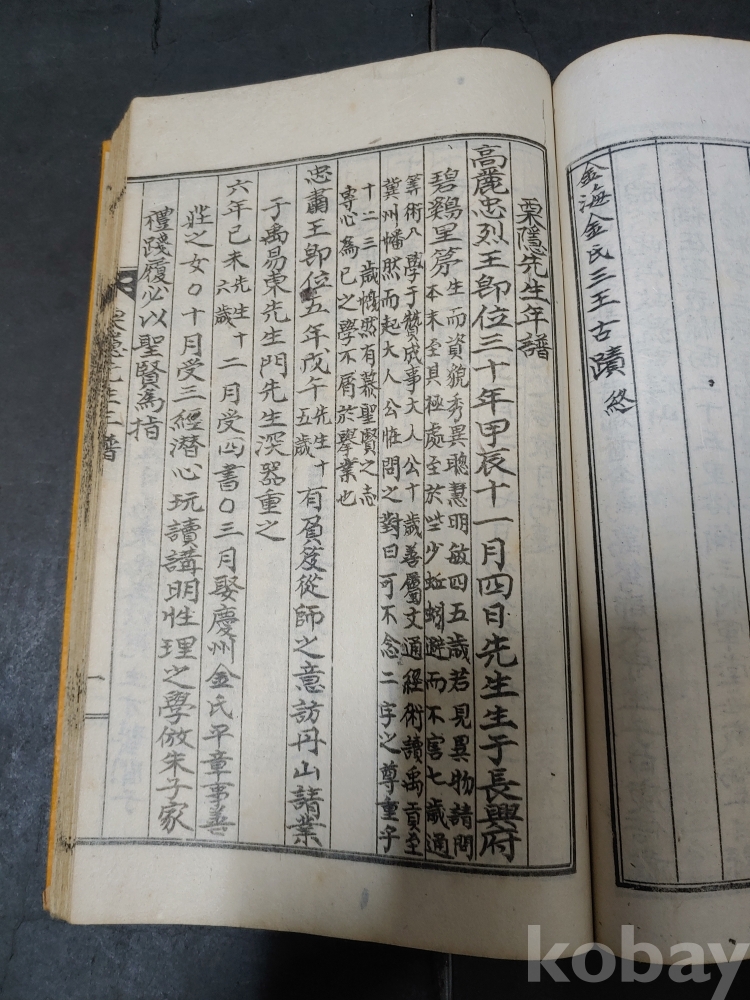 金海金氏三王古蹟 終
栗隱先生年譜
高麗忠烈王卽位三十年甲辰十一月四日先生生于長興府
碧鷄里第 生而資貌秀異聰慧明敏四五歲若見異物請問
本末至其極處至於些少蚯蚓避而不害七歲通
算術八學于贊成事大人公十歲善屬文通經術讀禹貢至
冀州幡然而起大人公怪問之對曰可不念二字之尊重乎
十二三歲慨然有慕聖賢之志
專心爲己之學不屑於擧業也
忠肅王卽位五年戊午 先生十五歲 有負笈從師之意訪丹山請業
于禹易東先生門先生深器重之
六年己未 先生十六歲 二月受四書〇三月娶慶州金氏平章事善
莊之女〇十月受三經潛心玩讀講明性理之學倣朱子家
禮踐履必以聖賢爲指
先生年譜
一
kobay